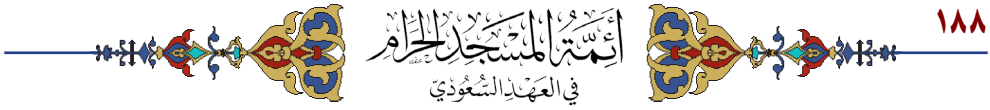 ١٨٨
أَئِمَّةُ المَسْجِدِ الحَرَامِ
فِي العَهْدِ السُّعُودِيِّ